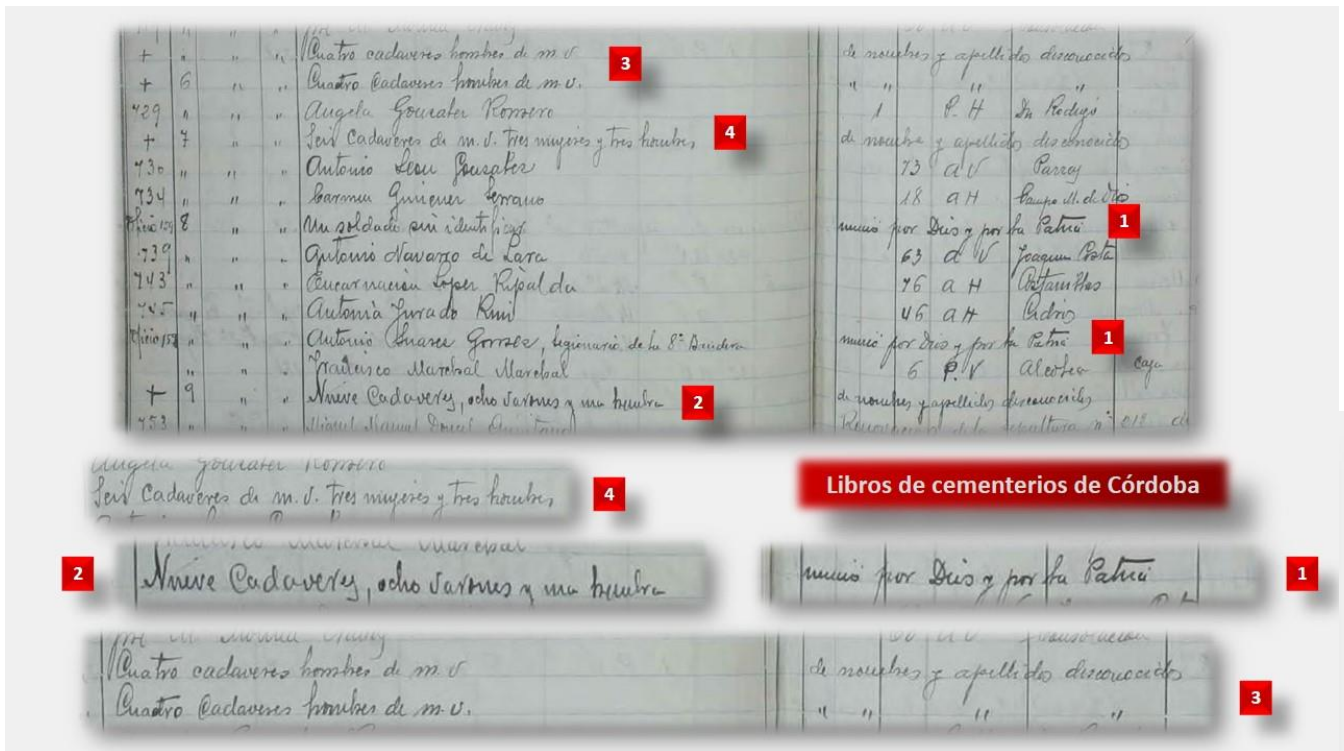 + " " " Cuatro cadaveres hombres de m. v. 3 de nombres y apellidos desconocidos
+ 6 " " Cuatro Cadaveres hombres de m. v. " " " "
729 " " " Angela Gonzalez Romero 1 P. H Sn Rodrigo
+ 7 " " Seis Cadaveres de m. v. tres mugeres y tres hombres, 4 de nombre y apellidos desconocidos
730 " " " Antonio Leon Gonzalez 73 a V Parras
734 " " " Carmen Gimenez Serrano 18 a H Campo M. de Dios
8 " " Un soldado sin identificar murió por Dios y por la Patria 1
739 " " " Antonio Navarro de Lara 63 a V Joaquin Costa
743 " " " Encarnación Lopez Ripalda 76 a H
745 " " " Antonia Jurado Ruiz 46 a H Cidros
" " " Antonio Suarez Gomez, legionario de la 8ª Bandera murió por Dios y por la Patria 1
" " " Francisco Marchal Marchal 6 P. V Alcolea Caja
+ 9 " " Nueve Cadaveres, ocho varones y una hembra 2 de nombres y apellidos desconocidos
753 " " " Miguel Manuel
Angela Gonzalez Romero
Seis Cadaveres de m. v. tres mugeres y tres hombres, 4
Libros de cementerios de Córdoba
2 Nueve Cadaveres, ocho varones y una hembra
murió por Dios y por la Patria 1
Cuatro cadaveres hombres de m. v. de nombres y apellidos desconocidos
Cuatro Cadaveres hombres de m. v. " " " " 3